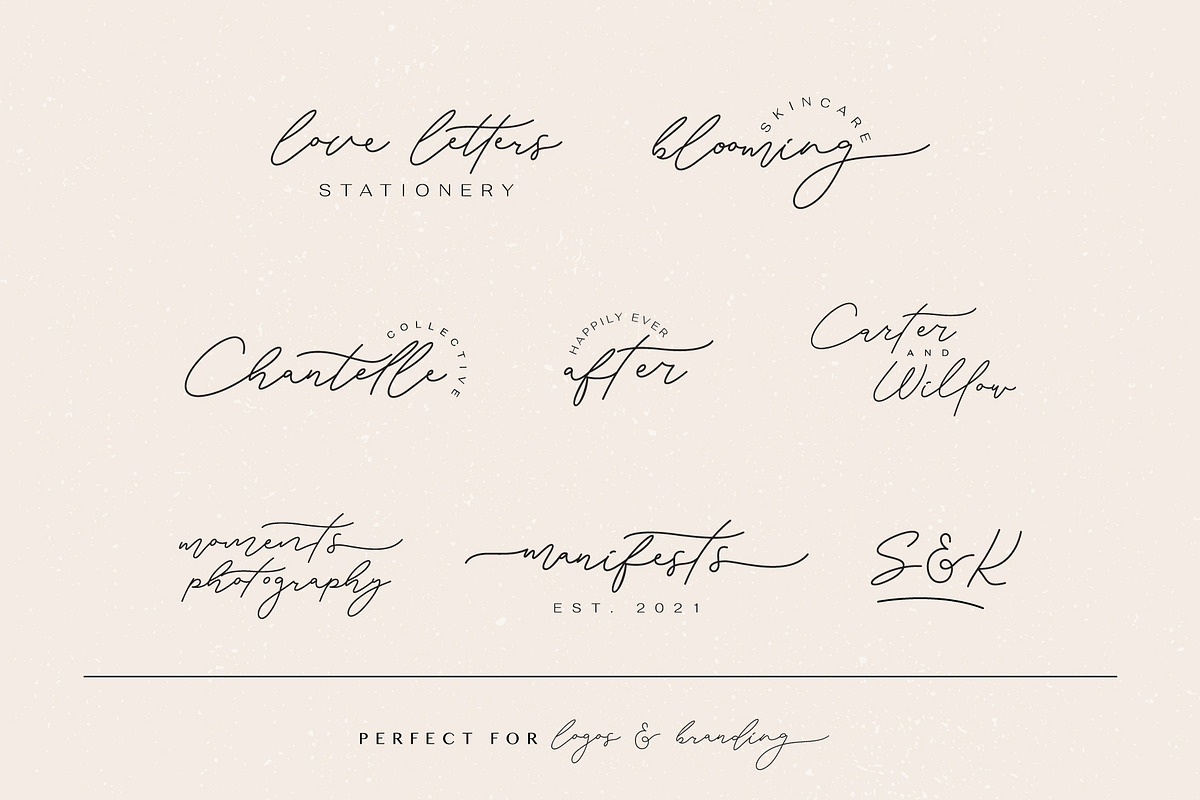 love letters
STATIONERY
SKINCARE
blooming
COLLECTIVE
Chantelle
HAPPILY EVER
after
Carter
AND
Willow
moments
photography
manifests
EST. 2021
S&K
PERFECT FOR logos & branding